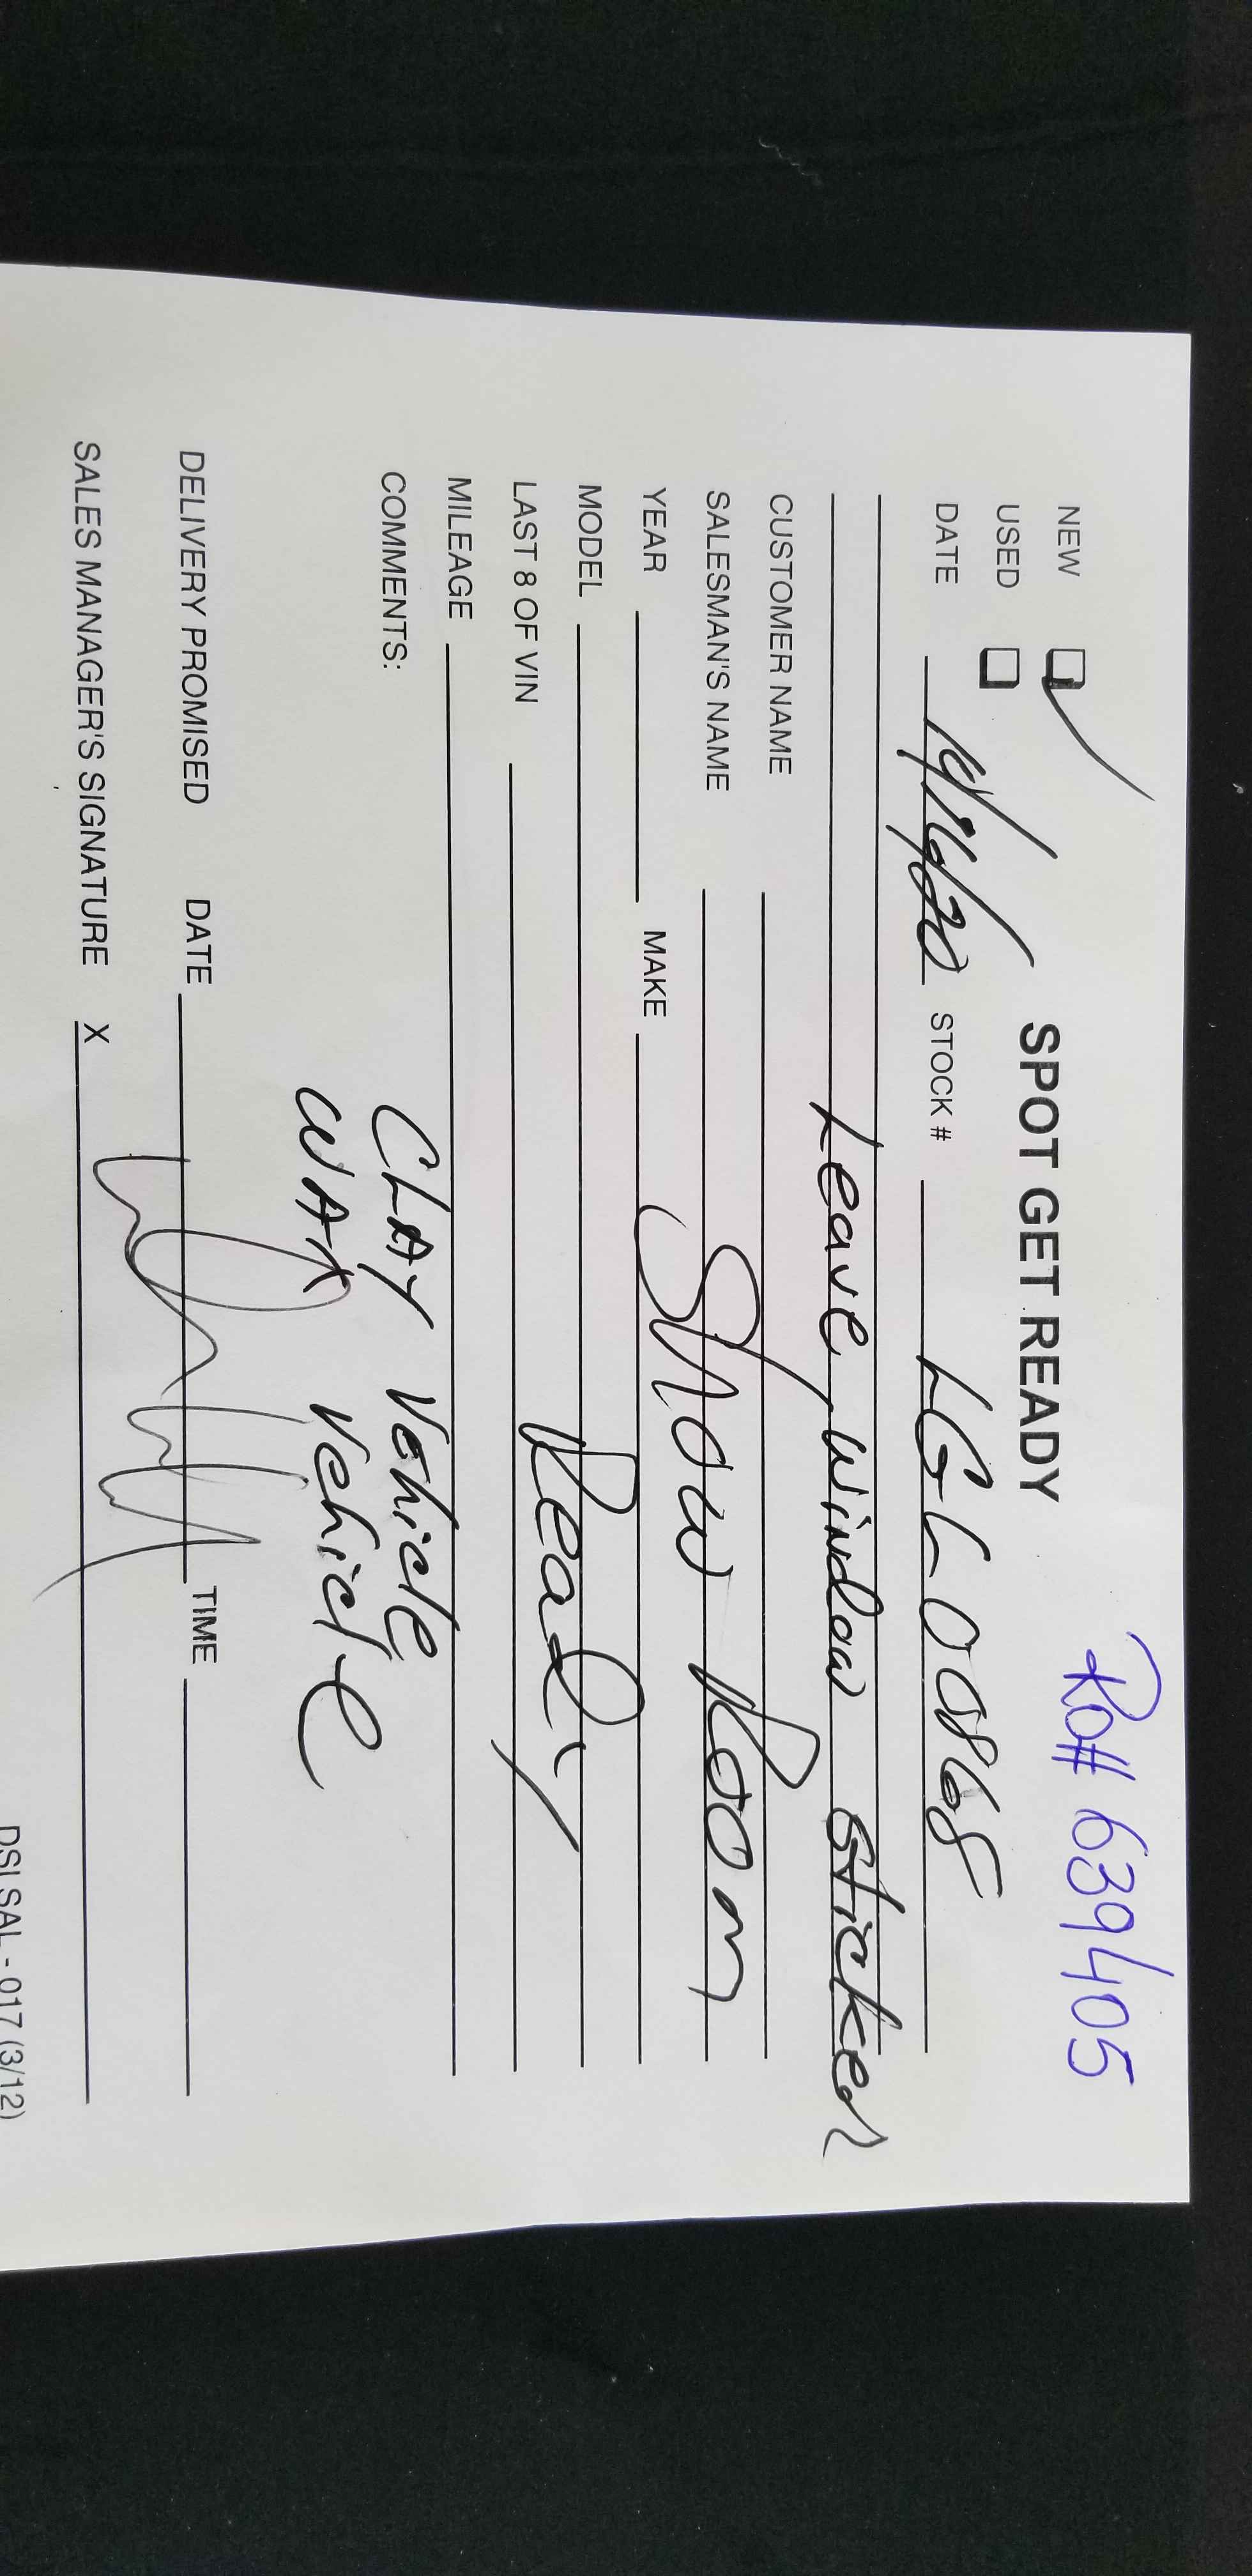 Ro# 639405
NEW
SPOT GET READY
USED
DATE 10/16/20 STOCK # LGL0868
Leave Window Sticker
CUSTOMER NAME
SALESMAN'S NAME Show Room
YEAR MAKE
MODEL Ready
LAST 8 OF VIN
MILEAGE
COMMENTS: CLAY Vehicle
WAX Vehicle
DELIVERY PROMISED DATE TIME
SALES MANAGER'S SIGNATURE X
DSI SAL - 017 (3/12)